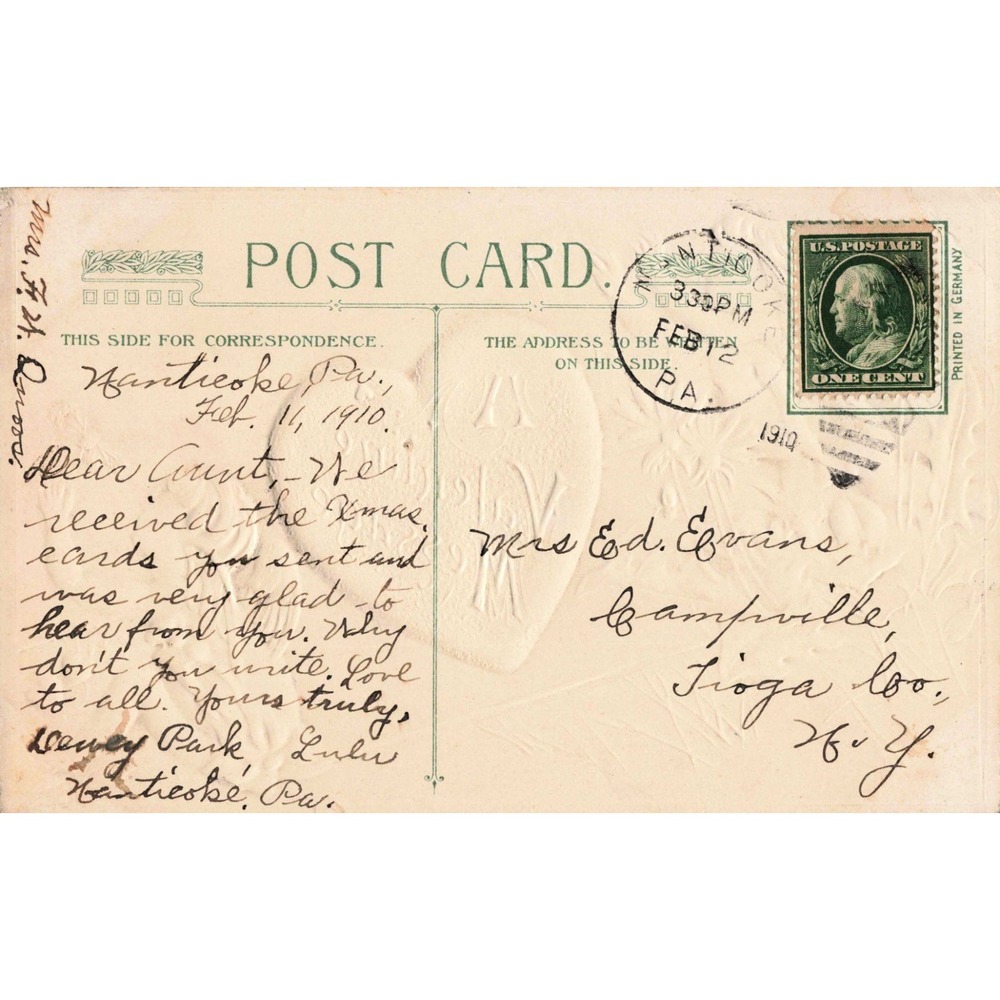 POST CARD.
THIS SIDE FOR CORRESPONDENCE.
THE ADDRESS TO BE WRITTEN
ON THIS SIDE.
NANTICOKE
330PM
FEB 12
PA.
1910
U.S. POSTAGE
ONE CENT
PRINTED IN GERMANY
Mrs.
Nanticoke, Pa.,
Feb. 11, 1910.
Dear Aunt,- We
received the Xmas.
cards you sent and
was very glad to
hear from you. Why
don't you write. Love
to all. Yours truly,
Dewey Park, Lulu
Nanticoke, Pa.
Mrs Ed. Evans,
Campville,
Tioga Co.,
N. Y.